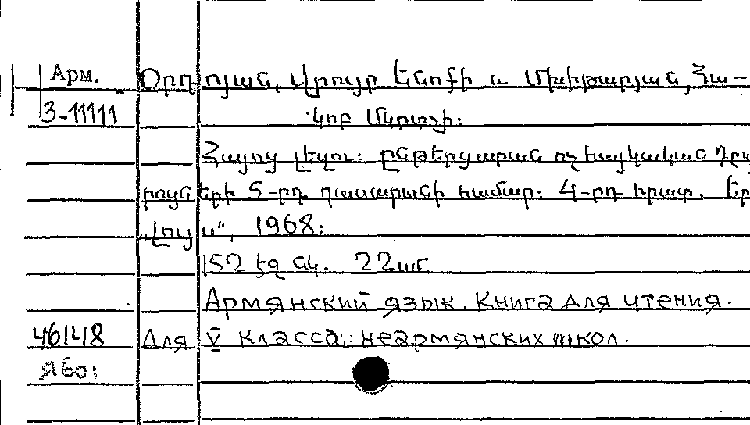 Арм. Օրդոյան, Վրույր Ենոքի և Մխիթարյան, Հա-
3-11111 կոբ Մկրտչի:
Հայոց լեզու: ընթերցարան ոչ հայկական դպր
րոցների 5-րդ դասարանի համար: 4-րդ հրատ. Եր
"Լույս", 1968:
152 էջ նկ. 22սմ
Армянский язык. Книга для чтения.
46148 Для V класса неармянских школ.